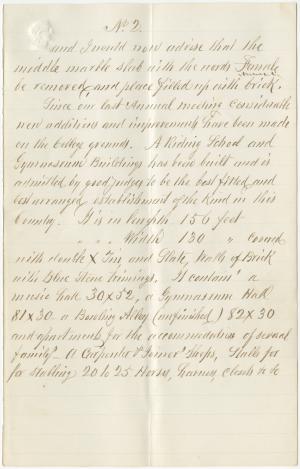 No 2.
and I would now advise that the
middle marble slab with the words Female
be removed and place filled up with brick.
Since our last Annual meeting considerable
new additions and improvements have been made
on the College grounds. A Riding School and
Gymnasium Buildings has been built and is
admitted by good judges to be the best fitted, and
best arranged establishment of the kind in this
Country. It is in length 156 feet
" " " Width 130 " covered
with X Tin and Slate, Walls of Brick
with Blue Stone trimings. It contains a
music hall 30 x 52, a Gymnasium Hall
81 x 30. a Bowling Alley (unfinished) 82 x 30
and apartments for the accommodation of several
familys. A Carpenter & Joiners Shops, Stalls for
for stabling 20 to 25 Horses, Harness, closets &c &c